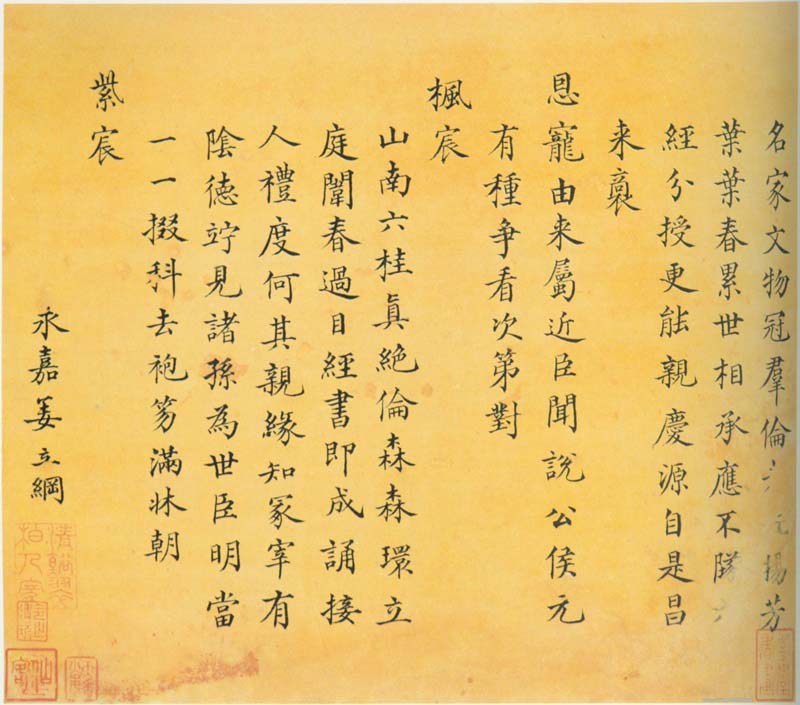 名家文物冠羣倫揚芳
葉葉春累世相承應不隊六
經分授更能親慶源自是昌
来裔
恩寵由来屬近臣聞說公侯元
有種争看次第對
楓宸
山南六桂眞絕倫森森環立
庭闈春過目經書即成誦接
人禮度何其親緣知冢宰有
陰德竚見諸孫為世臣明當
一一掇科去袍笏滿牀朝
紫宸
永嘉姜立綱